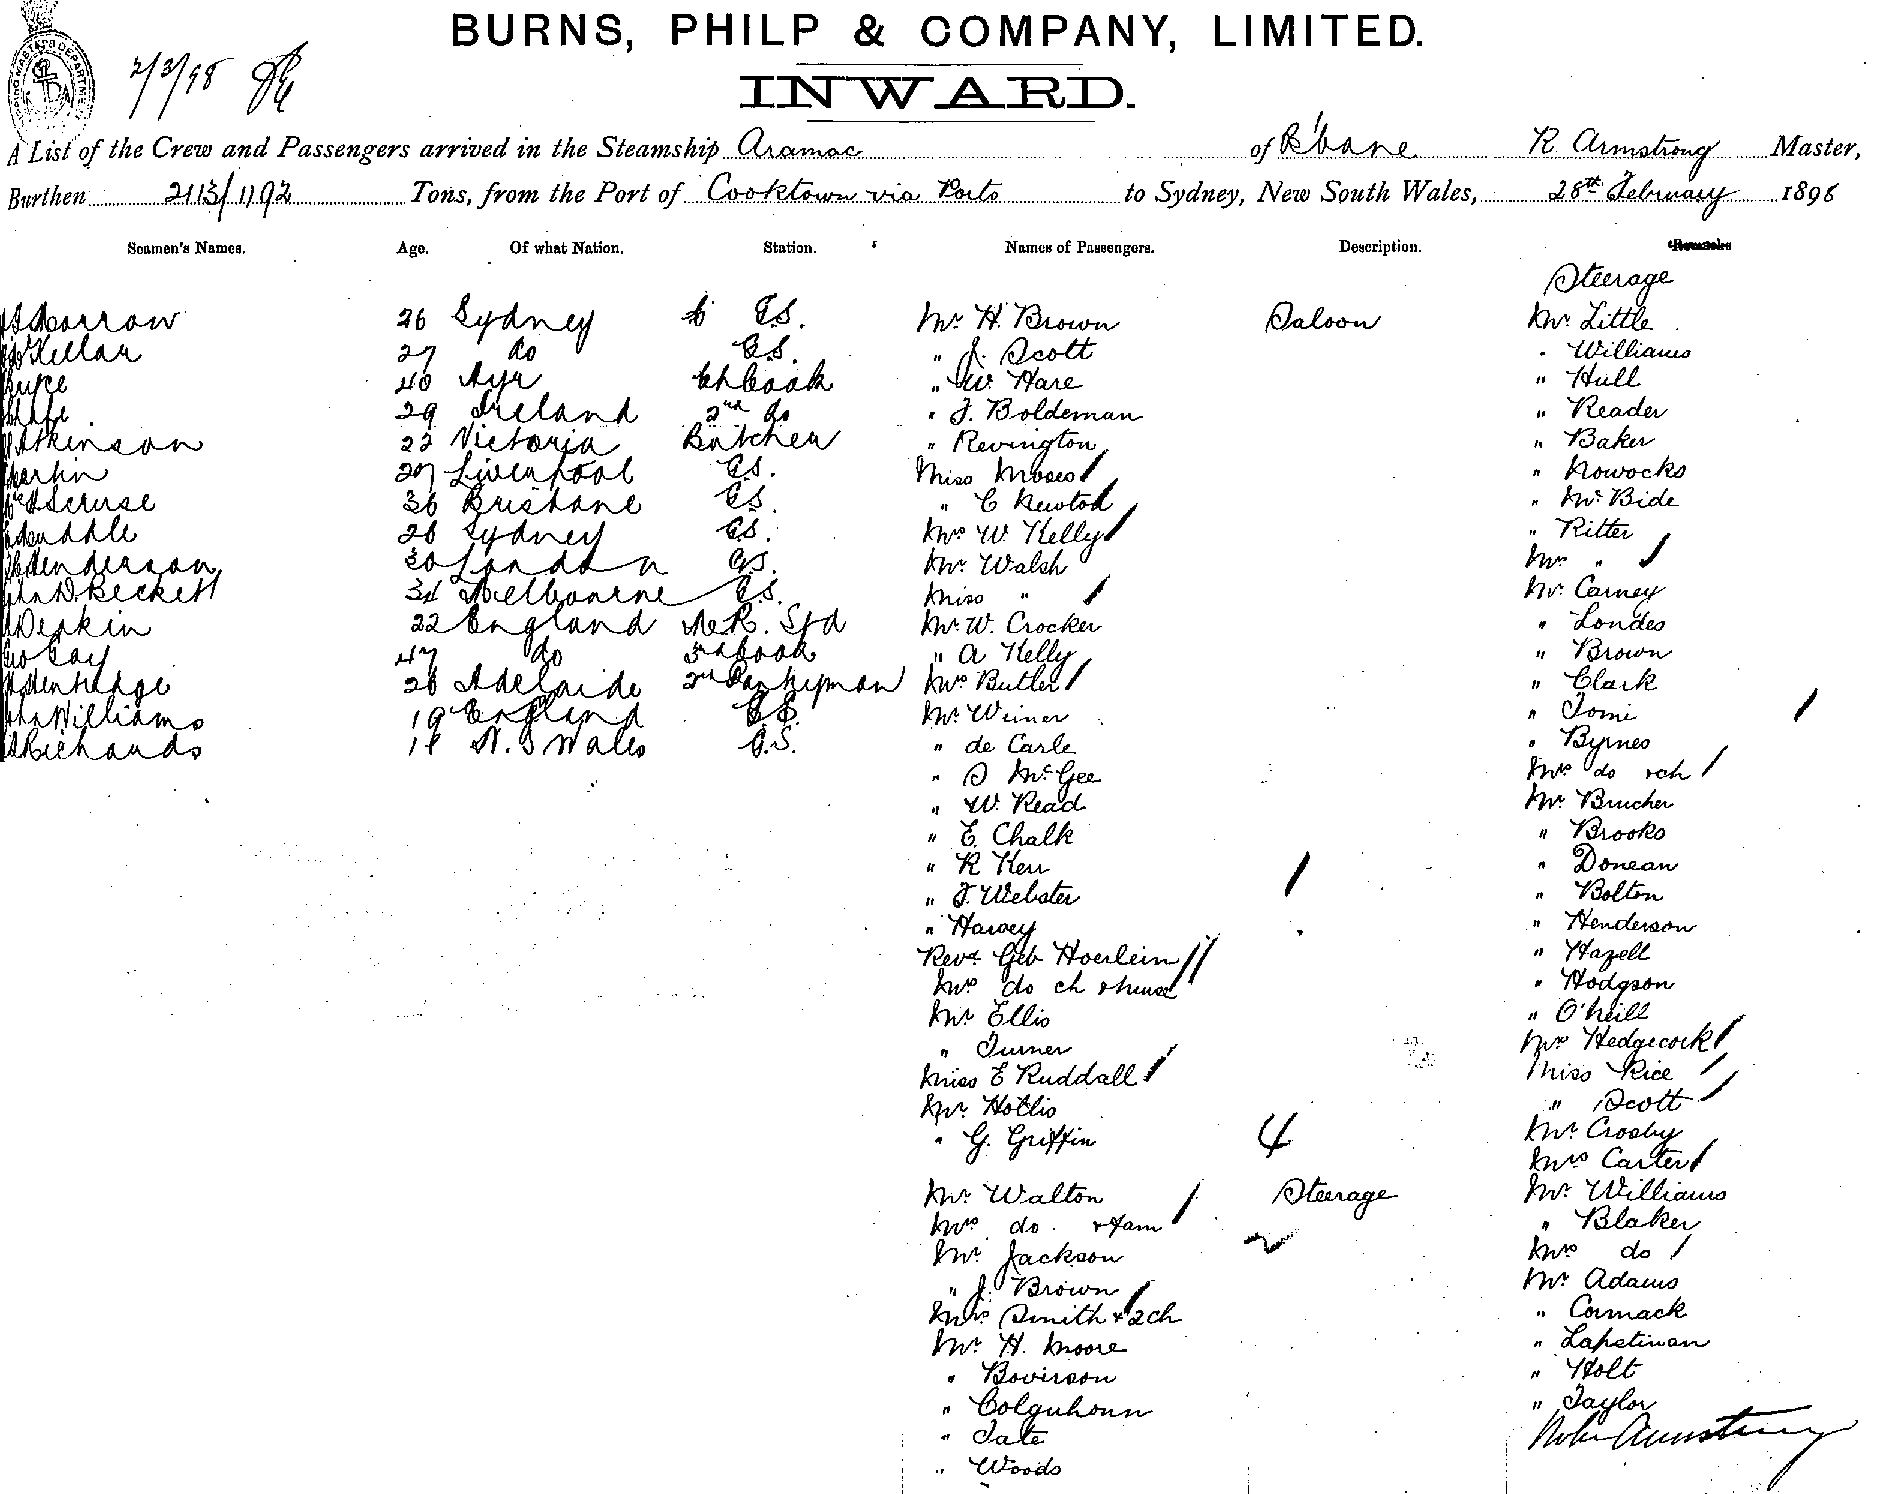 BURNS, PHILP & COMPANY, LIMITED.
2/3/98
INWARD.
A List of the Crew and Passengers arrived in the Steamship Aramac of B'bane R Armstrong Master,
Burthen 2113/1192 Tons, from the Port of Cooktown via Ports to Sydney, New South Wales, 28th February 1898
Seamen's Names. Age. Of what Nation. Station. Names of Passengers. Description. Remarks
Steerage
Morrow 26 Sydney G.S. Mr H. Brown Saloon Mr Little
McKellar 27 do G.S. " J. Scott " Williams
40 Ayr Ch Cook " W. Hare " Hull
29 Ireland 2nd do " J. Boldeman " Reader
Atkinson 22 Victoria Butcher " Revington " Baker
Martin 27 Liverpool G.S. Miss Moses " Nowocks
Scruse 36 Brisbane G.S. " C Newton " McBide
28 Sydney G.S. Mrs W Kelly " Ritter
Henderson 30 London G.S. Mr Walsh Mrs "
D. Beckett 34 Melbourne G.S. Miss " Mr Carney
Deakin 22 England Mr W. Crocker " Londes
Geo Cay 47 do 3rd Cook " A Kelly " Brown
28 Adelaide 2nd Pantryman Mrs Butler " Clark
John Williams 19 England G.S. Mr Wiener " Tomi
Richards N. S Wales G.S. " de Carle " Byrnes
" S McGee Mrs do & ch
" W. Read Mr Brucher
" E. Chalk " Brooks
" R Kerr " Donean
" J. Webster " Bolton
" Harvey " Henderson
Revd Geb Hoerlein " Hazell
Mrs do ch & nurse " Hodgson
Mr Ellis " O'Neill
" Turner Mrs Hedgecock
Miss E Ruddall Miss Rice
Mr Hollis " Scott
" G. Griffin 4 Mr Crosby
Mrs Carter
Mr Walton Steerage Mr Williams
Mrs do. & fam " Blaker
Mr Jackson Mrs do
" J. Brown Mr Adams
Mrs Smith & 2ch " Cormack
Mr H. Moore " Lapetinan
" Bovirson " Holt
" Colquhoun " Taylor
" Tate Robt Armstrong
" Woods